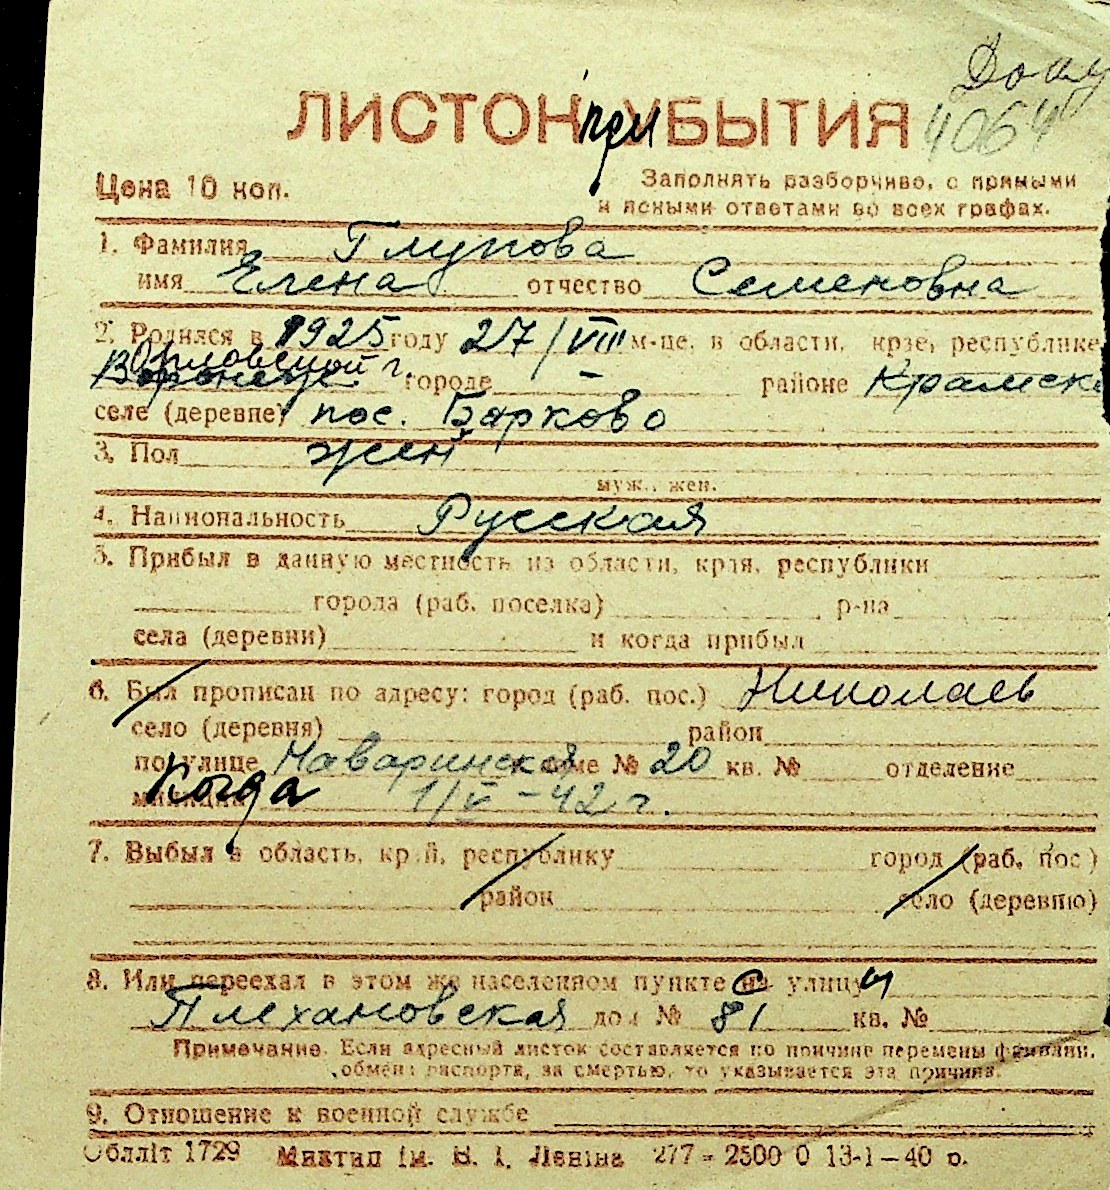 Доку
4064
ЛИСТОК при УБЫТИЯ
Цена 10 коп.
Заполнять разборчиво, с прямыми
и ясными ответами во всех графах.
1. Фамилия Глупова
имя Елена отчество Семеновна
2. Родился в 1925 году 27/VIII м-це, в области, крае, республике
Орловской г.
Воронеж городе – районе Крамск
селе (деревне) пос. Барково
3. Пол жен
муж., жен.
4. Национальность Русская
5. Прибыл в данную местность из области, края, республики
города (раб. поселка) р-на
села (деревни) и когда прибыл
6. Был прописан по адресу: город (раб. пос.) Николаев
село (деревня) район
по улице Наваринская доме № 20 кв. № отделение
милиции Когда 1/V – 42 г.
7. Выбыл в область, край, республику город (раб. пос)
район село (деревню)
8. Или переехал в этом же населенном пункте с на улицу и
Плехановская дом № 81 кв. №
Примечание. Если адресный листок составляется по причине перемены фамилии,
обмена паспорта, за смертью, то указывается эта причина.
9. Отношение к военной службе
Обллiт 1729 Миктип iм. В. I. Ленiна 277 – 2500 0 13-1–40 р.